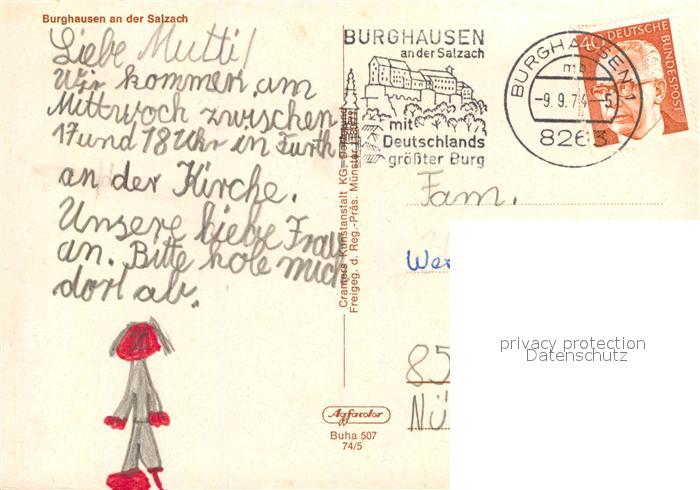 Burghausen an der Salzach
Liebe Mutti!
Wir kommen am
Mittwoch zwischen
17 und 18 Uhr in Fürth
an der Kirche.
Unsere liebe Frau
an. Bitte hole mich
dort ab.
Cramers Kunstanstalt KG
Freigeg. d. Reg.-Präs. Münster
Agfacolor
Buha 507
74/5
BURGHAUSEN
an der Salzach
mit
Deutschlands
größter Burg
BURGHAUSEN 1
mb
-9.9.74-5
8263
40 DEUTSCHE BUNDESPOST
Fam.
We
85
Nü
privacy protection
Datenschutz